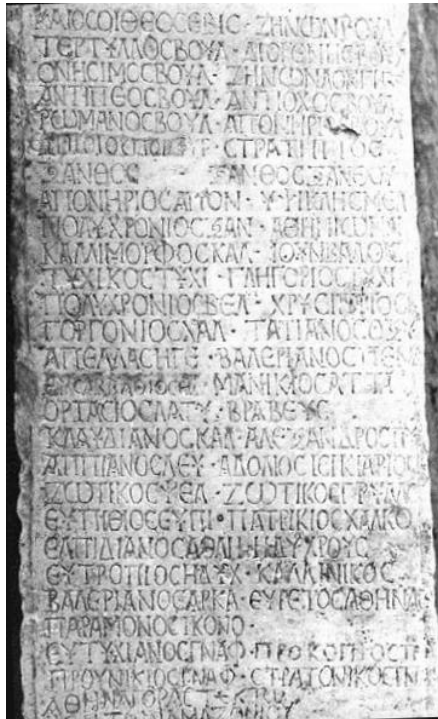 ΚΑΙ ΟΣΟΙ ΘΕΟΣΕΒΙΣ· ΖΗΝΩΝ ΒΟΥΛ
ΤΕΡΤΥΛΛΟΣ ΒΟΥΛ· ΔΙΟΓΕΝΗΣ ΒΟΥ
ΟΝΗΣΙΜΟΣ ΒΟΥΛ· ΖΗΝΩΝ ΛΟΝΓΙ
ΑΝΤΙΠΕΟΣ ΒΟΥΛ· ΑΝΤΙΟΧΟΣ ΒΟΥΛ
ΡΩΜΑΝΟΣ ΒΟΥΛ· ΑΠΟΝΗΡΙΟΣ ΒΟΥΛ
ΣΤΡΑΤΗΓΙΟΣ
ΞΑΝΘΟΣ ΞΑΝΘΟΣ ΞΑΝΘΟΥ
ΑΠΟΝΗΡΙΟΣ ΑΠΟΝ· ΥΨΙΚΛΗΣ ΜΕΛ
ΠΟΛΥΧΡΟΝΙΟΣ ΞΑΝ· ΑΘΗΝΙΩΝ
ΚΑΛΛΙΜΟΡΦΟΣ ΚΑΛ· ΙΟΥΝΒΑΛΟΣ
ΤΥΧΙΚΟΣ ΤΥΧΙ· ΓΛΗΓΟΡΙΟΣ ΤΥΧΙ
ΠΟΛΥΧΡΟΝΙΟΣ ΒΕΛ· ΧΡΥΣΙΠΠΟΣ
ΓΟΡΓΟΝΙΟΣ ΧΑΛ· ΤΑΤΙΑΝΟΣ ΟΞΥ
ΑΠΕΛΛΑΣ ΗΓΕ· ΒΑΛΕΡΙΑΝΟΣ ΠΕΝΑ
ΕΥΣΑΒΒΑΘΙΟΣ ΜΑΝΙΚΙΟΣ ΑΤΤΑ
ΟΡΤΑΣΙΟΣ ΛΑΤΥ· ΒΡΑΒΕΥΣ
ΚΛΑΥΔΙΑΝΟΣ ΚΑΛ· ΑΛΕΞΑΝΔΡΟΣ ΠΥ
ΑΠΠΙΑΝΟΣ ΛΕΥ· ΑΔΟΛΙΟΣ ΙΣΙΚΙΑΡΙΟΣ
ΖΩΤΙΚΟΣ ΨΕΛ· ΖΩΤΙΚΟΣ ΓΡΥΛΛΟΣ
ΕΥΠΙΘΙΟΣ ΕΥΠΙ· ΠΑΤΡΙΚΙΟΣ ΧΑΛΚΟ
ΕΛΠΙΔΙΑΝΟΣ ΑΘΛΗ· ΗΔΥΧΡΟΥΣ
ΕΥΤΡΟΠΙΟΣ ΗΔΥΧ· ΚΑΛΛΙΝΙΚΟΣ
ΒΑΛΕΡΙΑΝΟΣ ΑΡΚΑ· ΕΥΡΕΤΟΣ ΑΘΗΝΑΓ
ΠΑΡΑΜΟΝΟΣ ΙΚΟΝΟ·
ΕΥΤΥΧΙΑΝΟΣ ΓΝΑΦ· ΠΡΟΚΟΠΙΟΣ ΤΡ
ΠΡΟΥΝΙΚΙΟΣ ΓΝΑΦ· ΣΤΡΑΤΟΝΙΚΟΣ ΓΝΑ
ΑΘΗΝΑΓΟΡΑΣ